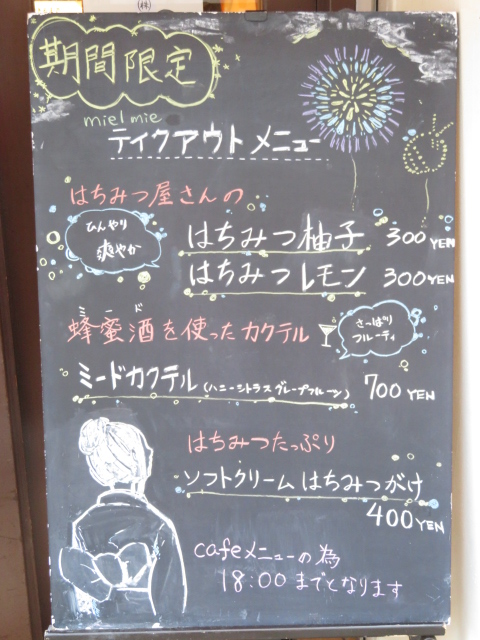 (株)
期間限定
miel mie
テイクアウトメニュー
はちみつ屋さんの
ひんやり
爽やか
はちみつ柚子 300YEN
はちみつレモン 300YEN
ミード
蜂蜜酒を使ったカクテル
さっぱり
フルーティ
ミードカクテル (ハニーシトラスグレープフルーツ) 700YEN
はちみつたっぷり
ソフトクリームはちみつがけ
400YEN
cafeメニューの為
18:00までとなります